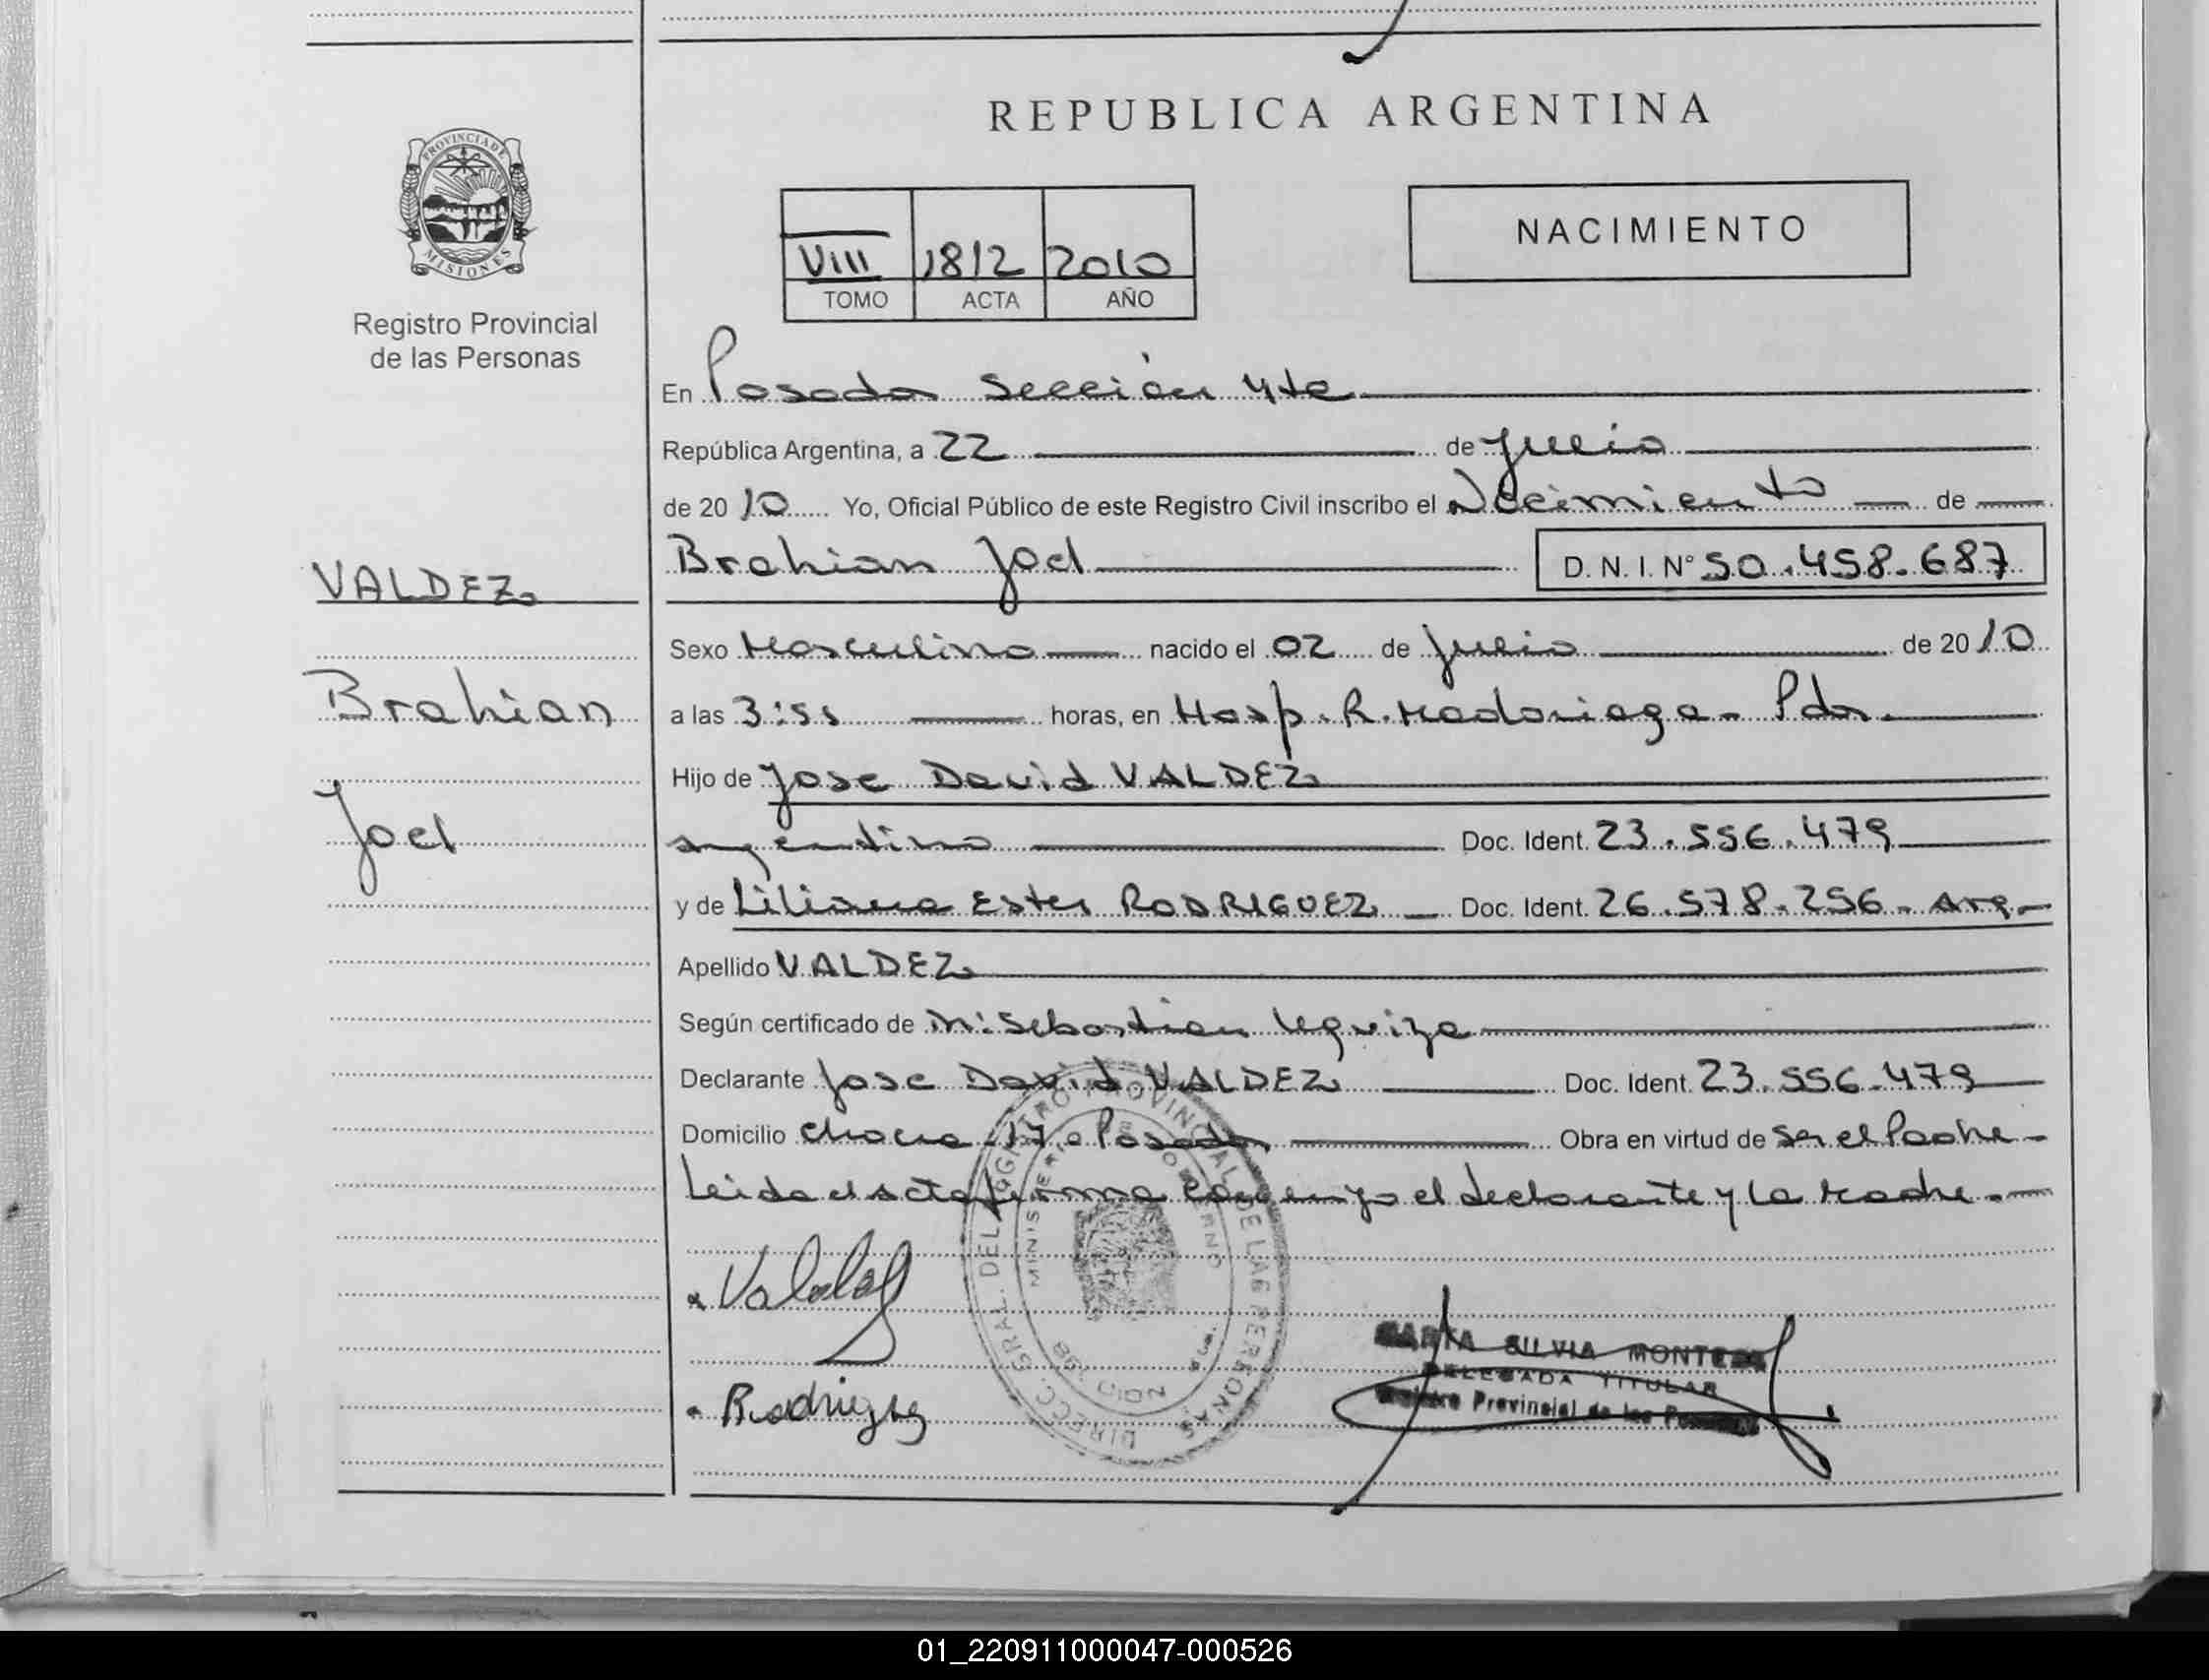 REPUBLICA ARGENTINA
PROVINCIA DE MISIONES
Registro Provincial
de las Personas
VIII 1812 2010
TOMO ACTA AÑO
NACIMIENTO
En Posadas Sección 4ta
República Argentina, a 22 de Julio
de 2010 Yo, Oficial Público de este Registro Civil inscribo el Nacimiento de
Brahian Joel D.N.I. Nº 50.458.687
VALDEZ
Brahian
Joel
Sexo Masculino nacido el 02 de Julio de 2010
a las 3:55 horas, en Hosp. R. Madariaga - Pdas.
Hijo de Jose David VALDEZ
argentino Doc. Ident. 23.556.479
y de Liliana Ester RODRIGUEZ Doc. Ident. 26.578.256 - Arg -
Apellido VALDEZ
Según certificado de M: Sebastian Urquiza
Declarante Jose David VALDEZ Doc. Ident. 23.556.479
Domicilio Chacra 17 - Posadas Obra en virtud de Ser el Padre -
Leida el acta firma conmigo el declarante y la Madre. -
Valdez
Rodriguez
DIRECC. GRAL. DEL REGISTRO PROVINCIAL DE LAS PERSONAS
MINISTERIO DE GOBIERNO
MARTA SILVIA MONTES
DELEGADA TITULAR
Registro Provincial de las Personas
01_220911000047-000526